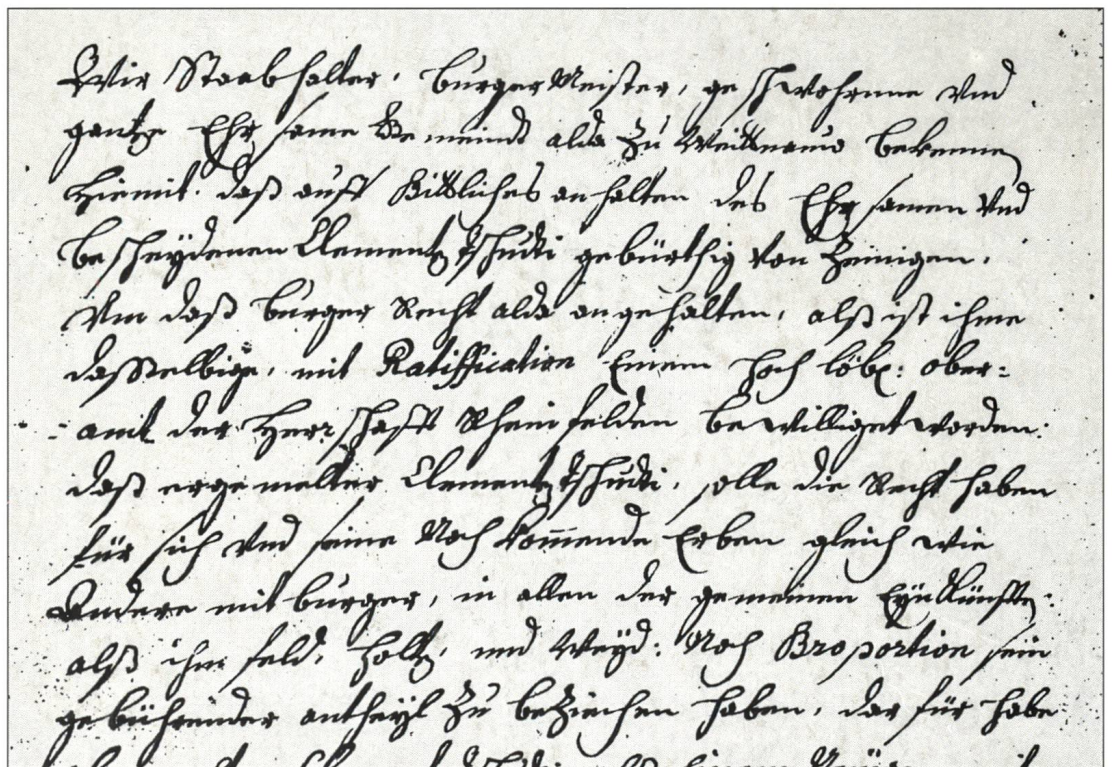 Wir Staabhalter, burgerMeister, geschwohrnne Vnd
gantze Ehrsame Gemeindt alda Zu Weittnauw bekenne
Hiemit, daß auff Bittliches anhalten des Ehrsamen Vnd
bescheydenen Clementz Tschudi gebürthig Von Zeinigen,
Vm daß burger Recht alda angehalten, alß ist ihme
dasselbige, mit Ratiffication Einem Hoch löbl: ober=
amt der Herrschafft Rheinfelden bewilliget worden:
daß ergemelter Clementz Tschudi, solle die Recht haben
für sich Vnd seine Nachkom̄ende Erben gleich wie
Andere mitburger, in allen der gemeinen Eynkünfften:
alß ihn feld, Holtz, und Weyd: Nach Broportion sein
gebührender antheyl Zu beZiechen haben, dar für habe